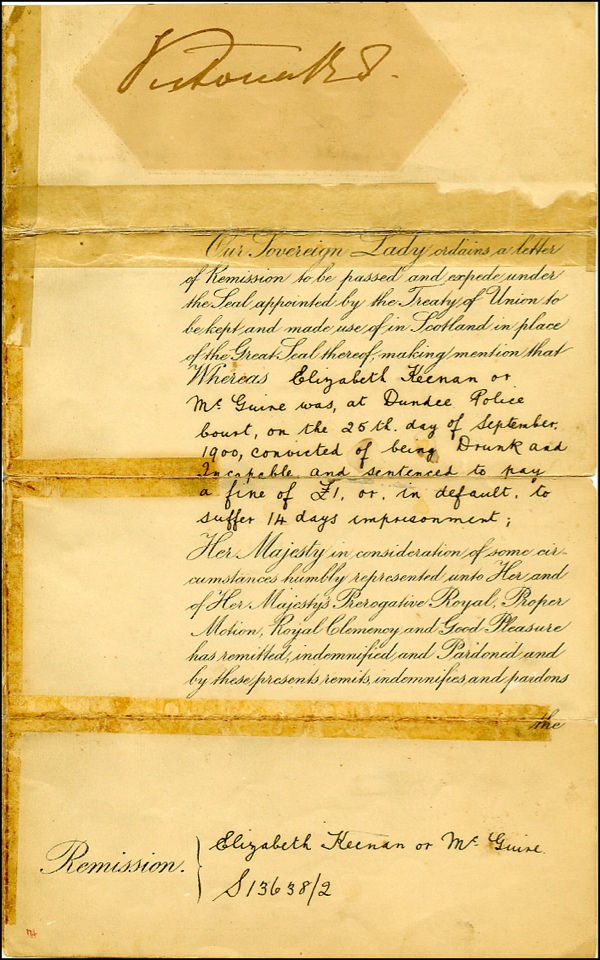 Victoria R I.
Our Sovereign Lady ordains a letter
of Remission to be passed and expede under
the Seal appointed by the Treaty of Union to
be kept and made use of in Scotland in place
of the Great Seal thereof, making mention that
Whereas Elizabeth Keenan or
Mc Guire was, at Dundee Police
Court, on the 25th. day of September.
1900, convicted of being Drunk and
Incapable and sentenced to pay
a fine of £1, or, in default, to
suffer 14 days imprisonment;
Her Majesty in consideration of some cir-
cumstances humbly represented unto Her and
of Her Majesty's Prerogative Royal, Proper
Motion, Royal Clemency and Good Pleasure
has remitted, indemnified, and Pardoned and
by these presents remits, indemnifies, and pardons
the
Remission. Elizabeth Keenan or Mc Guire
S13638/2